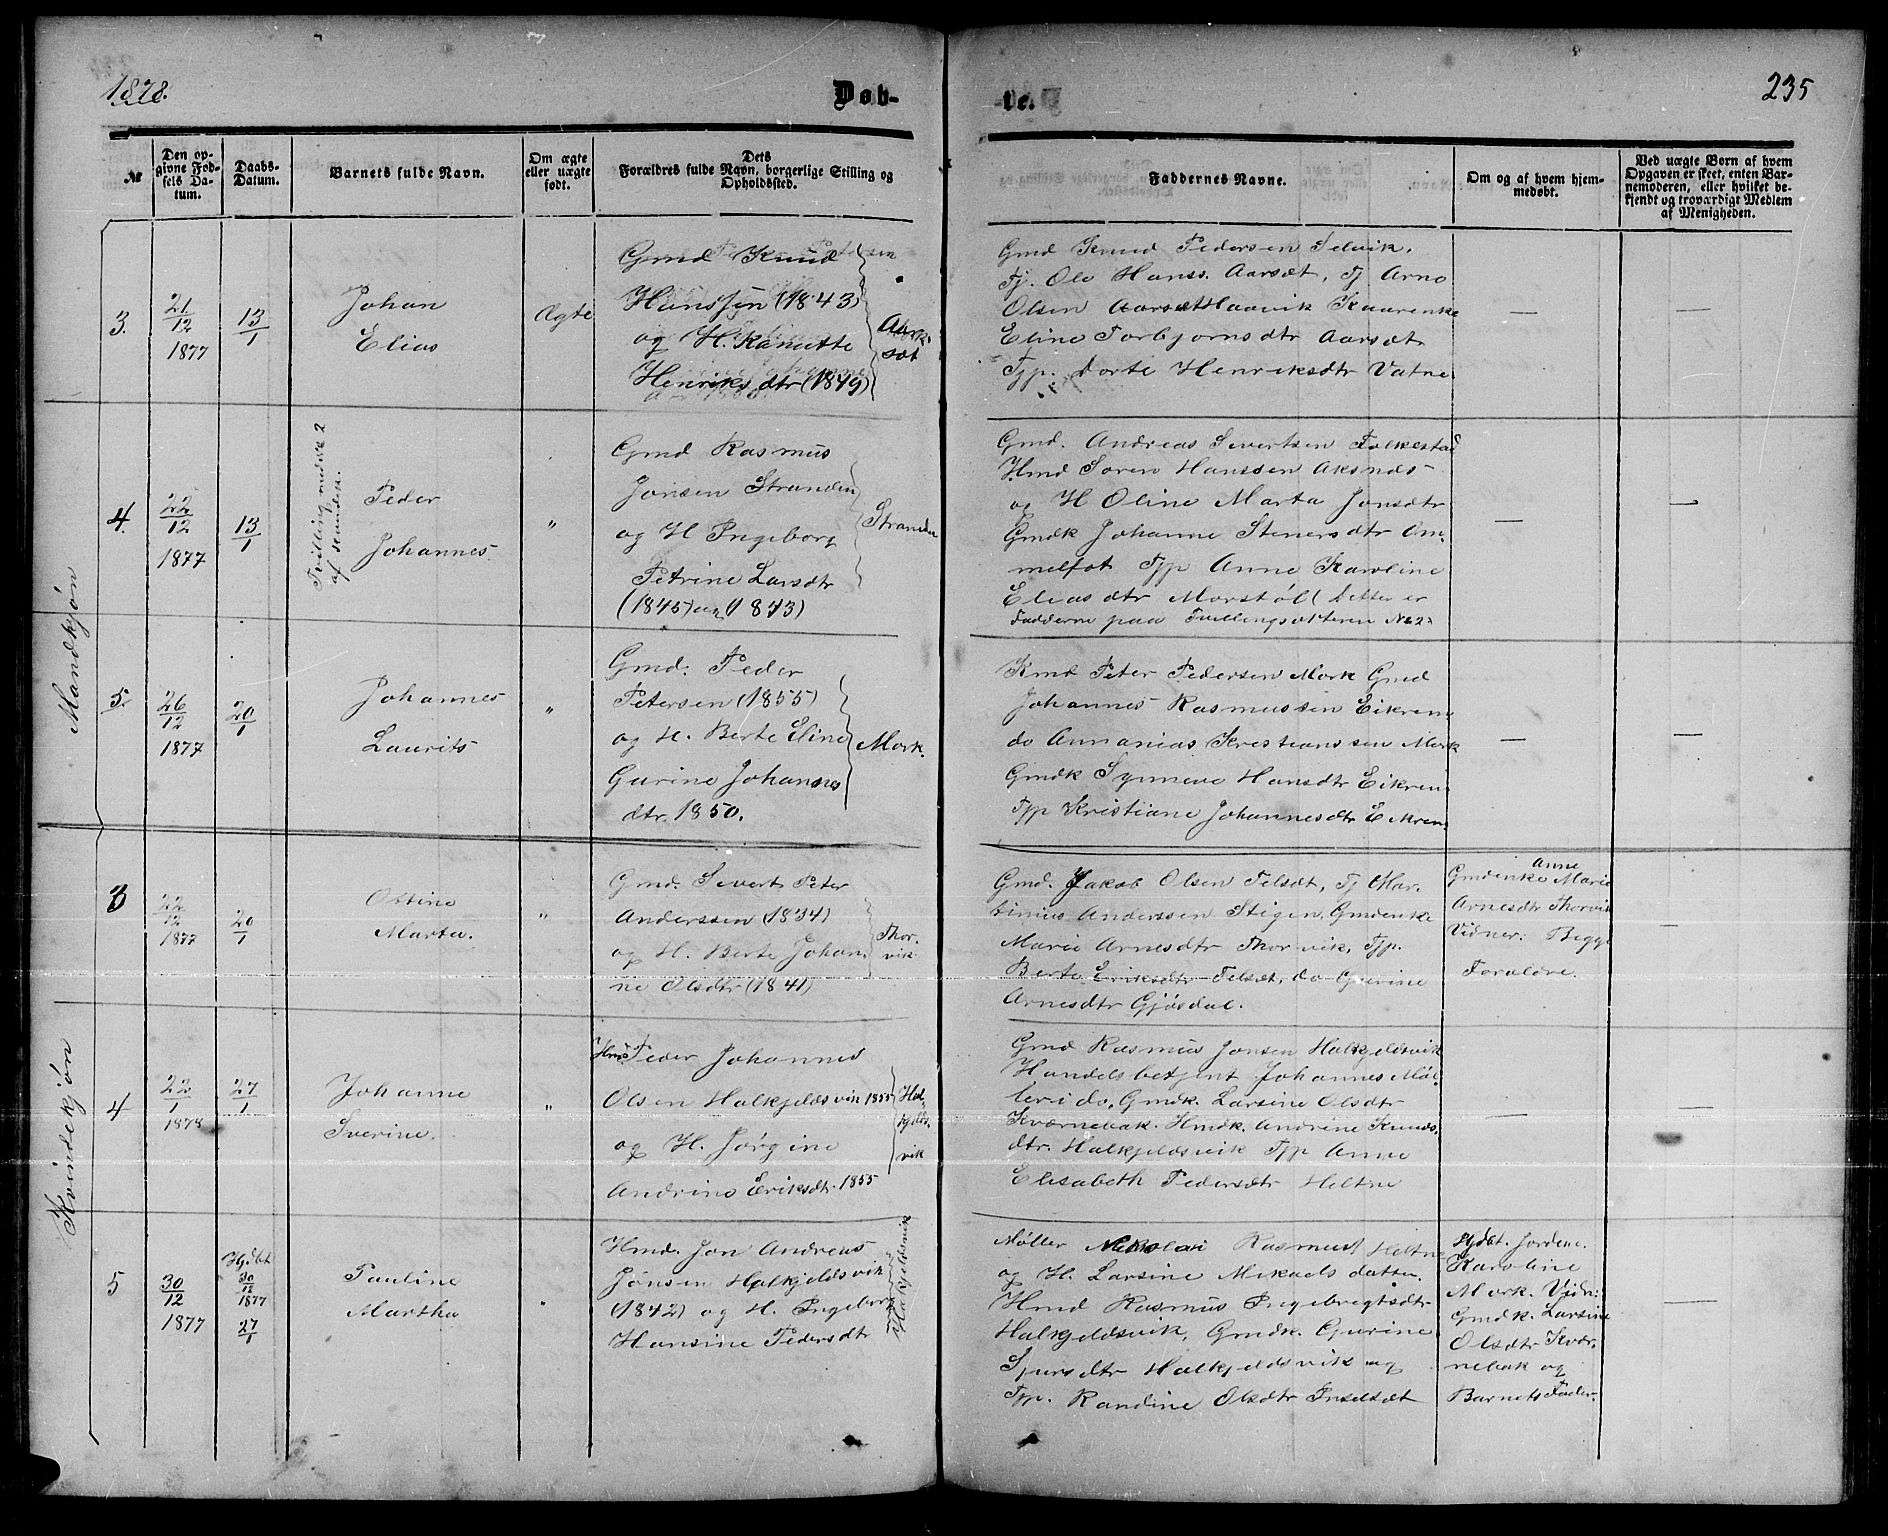 1878.
Døb-
te.
235
№
Den op-
givne Fød-
sels Da-
tum.
Daabs-
Datum.
Barnets fulde Navn.
Om ægte
eller uægte
født.
Dets
Forældres fulde Navn, borgerlige Stilling og
Opholdssted.
Faddernes Navne.
Om og af hvem hjem-
medøbt.
Ved uægte Børn af hvem
Opgaven er skeet, enten Bar-
nemoderen, eller hvilket be-
kjendt og troværdigt Medlem
af Menigheden.
Mandkjøn
3.
21/12
1877
13/1
Johan
Elias
Ægte
Gmd Knud
Hanssen (1843)
og H. Kanutte
Henriksdtr (1849)
Aar-
sæt
Gmd Knud Pedersen Selvik,
Tj. Ole Hanss. Aarsæt, Tj Arne
Olsen Haavik Kaarenke
Eline Torbjørnsdtr Aarsæt
Tjp. Dorte Henriksdtr Vatne
—
—
4.
22/12
1877
13/1
Tvilling med № 2
af kvindekn.
Peder
Johannes
"
Gmd Rasmus
Jonsen Stranden
og H Ingeborg
Petrine Larsdtr
(1845) og (1843)
Stranden
Gmd. Andreas Sivertsen Folkestad
Hmd Søren Hanssen Aksnes
og H Oline Marta Jonsdtr
Gmdk Johanne Stenersdtr Om-
melfot Tjp Anne Karoline
Eliasdtr Morstøl (Dette er
Fadderne paa Tvillingsøsteren № 2)
—
—
5.
26/12
1877
20/1
Johannes
Laurits
"
Gmd. Peder
Petersen (1855)
og H. Berte Eline
Gurine Johannes
dtr. 1850.
Mork.
Kmd Peter Pedersen Mork Gmd
Johannes Rasmussen Eikrem
do Annanias Kristianssen Mork
Gmdk Synneve Hansdtr Eikrem
Tjp Kristiane Johannesdtr Eikrem
—
—
Kvindekjøn
3
22/12
1877
20/1
Ottine
Marta.
"
Gmd. Sivert Peter
Anderssen (1834)
og H. Berte Johan-
ne Olsdtr (1841)
Thor-
vik
Gmd. Jakob Olsen Felsæt, Tj Mar-
tinius Anderssen Stigen, Gmdenke
Marie Arnesdtr Thorvik, Tjp.
Berte Eriksdtr Felsæt, do Gurine
Arnesdtr Gjøsdal.
Anne
Gmdenke Marie
Arnesdtr Thorvik
Vidner: Begge
Forældre.
—
4
22/1
1878
27/1
Johanne
Sverine.
"
Hmd Peder Johannes
Olsen Halkjeldsvik 1855
og H. Jørgine
Andrine Eriksdtr. 1855
Hal-
kjelds-
vik
Gmd Rasmus Jonsen Halkjeldsvik
Handelsbetjent Johannes Møl-
ler i do, Gmdk. Larsine Olsdtr
Kværnebak. Hmdk. Andrine Knuds-
dtr. Halkjeldsvik Tjp Anne
Elisabeth Pedersdtr Heltne
—
—
5
30/12
1877
Hjdbt
30/12
1877
27/1
Pauline
Martha
"
Hmd. Jon Andreas
Jonsen Halkjeldsvik
(1842) og H. Ingeborg
Hansine Pedersdtr
Halkjeldsvik
Møller Nikolai Rasmus Heltne
og H. Larsine Mikaels datter
Hmd Rasmus Ingebregtsdtr
Halkjeldsvik, Gmdk. Gurine
Sjursdtr Halkjeldsvik og
Tjp. Randine Olsdtr Indselsæt
Hjdbt. Jordem.
Karoline
Mork. Vidn:
Gmdk. Larsine
Olsdtr Kvær-
nebak og
Barnets Fader.
—